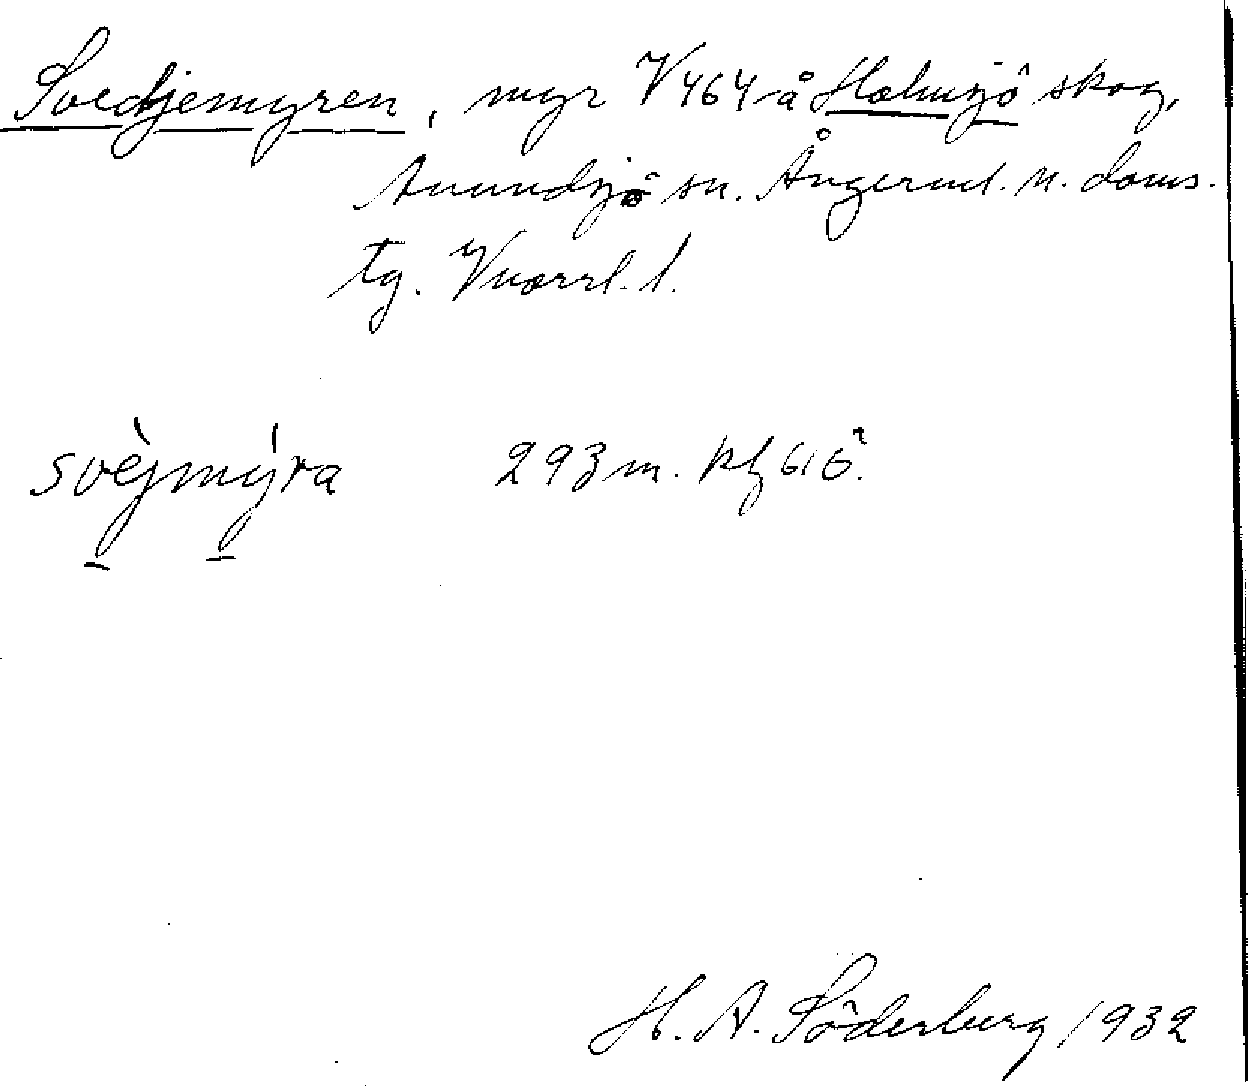 Svedjemyren, myr V 464 å Holmsjö skog,
Anundsjö sn. Ångerml. n. doms.
tg. Vnorrl. l.
svèjmýra 293 m.
H. A. Söderberg 1932